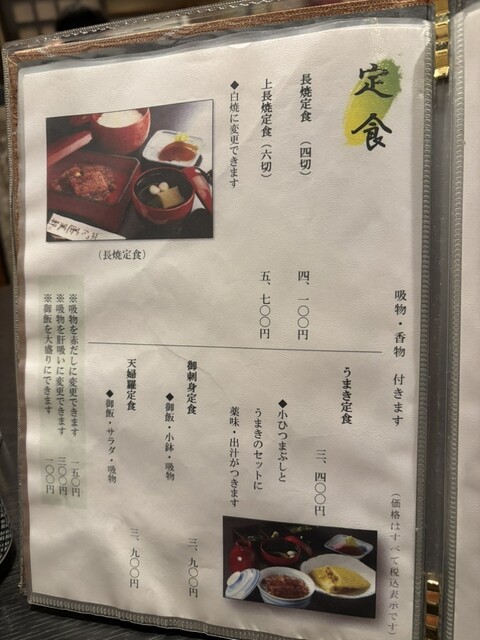 定食
吸物・香物 付きます
(価格はすべて税込表示です)
長焼定食 (四切) 四、一〇〇円
上長焼定食(六切) 五、七〇〇円
◆白焼に変更できます
(長焼定食)
うまき定食 三、四〇〇円
◆小ひつまぶしと
うまきのセットに
薬味・出汁がつきます
御刺身定食 三、九〇〇円
◆御飯・小鉢・吸物
天婦羅定食 三、九〇〇円
◆御飯・サラダ・吸物
※吸物を赤だしに変更できます 一五〇円
※吸物を肝吸いに変更できます 三〇〇円
※御飯を大盛りにできます 一〇〇円